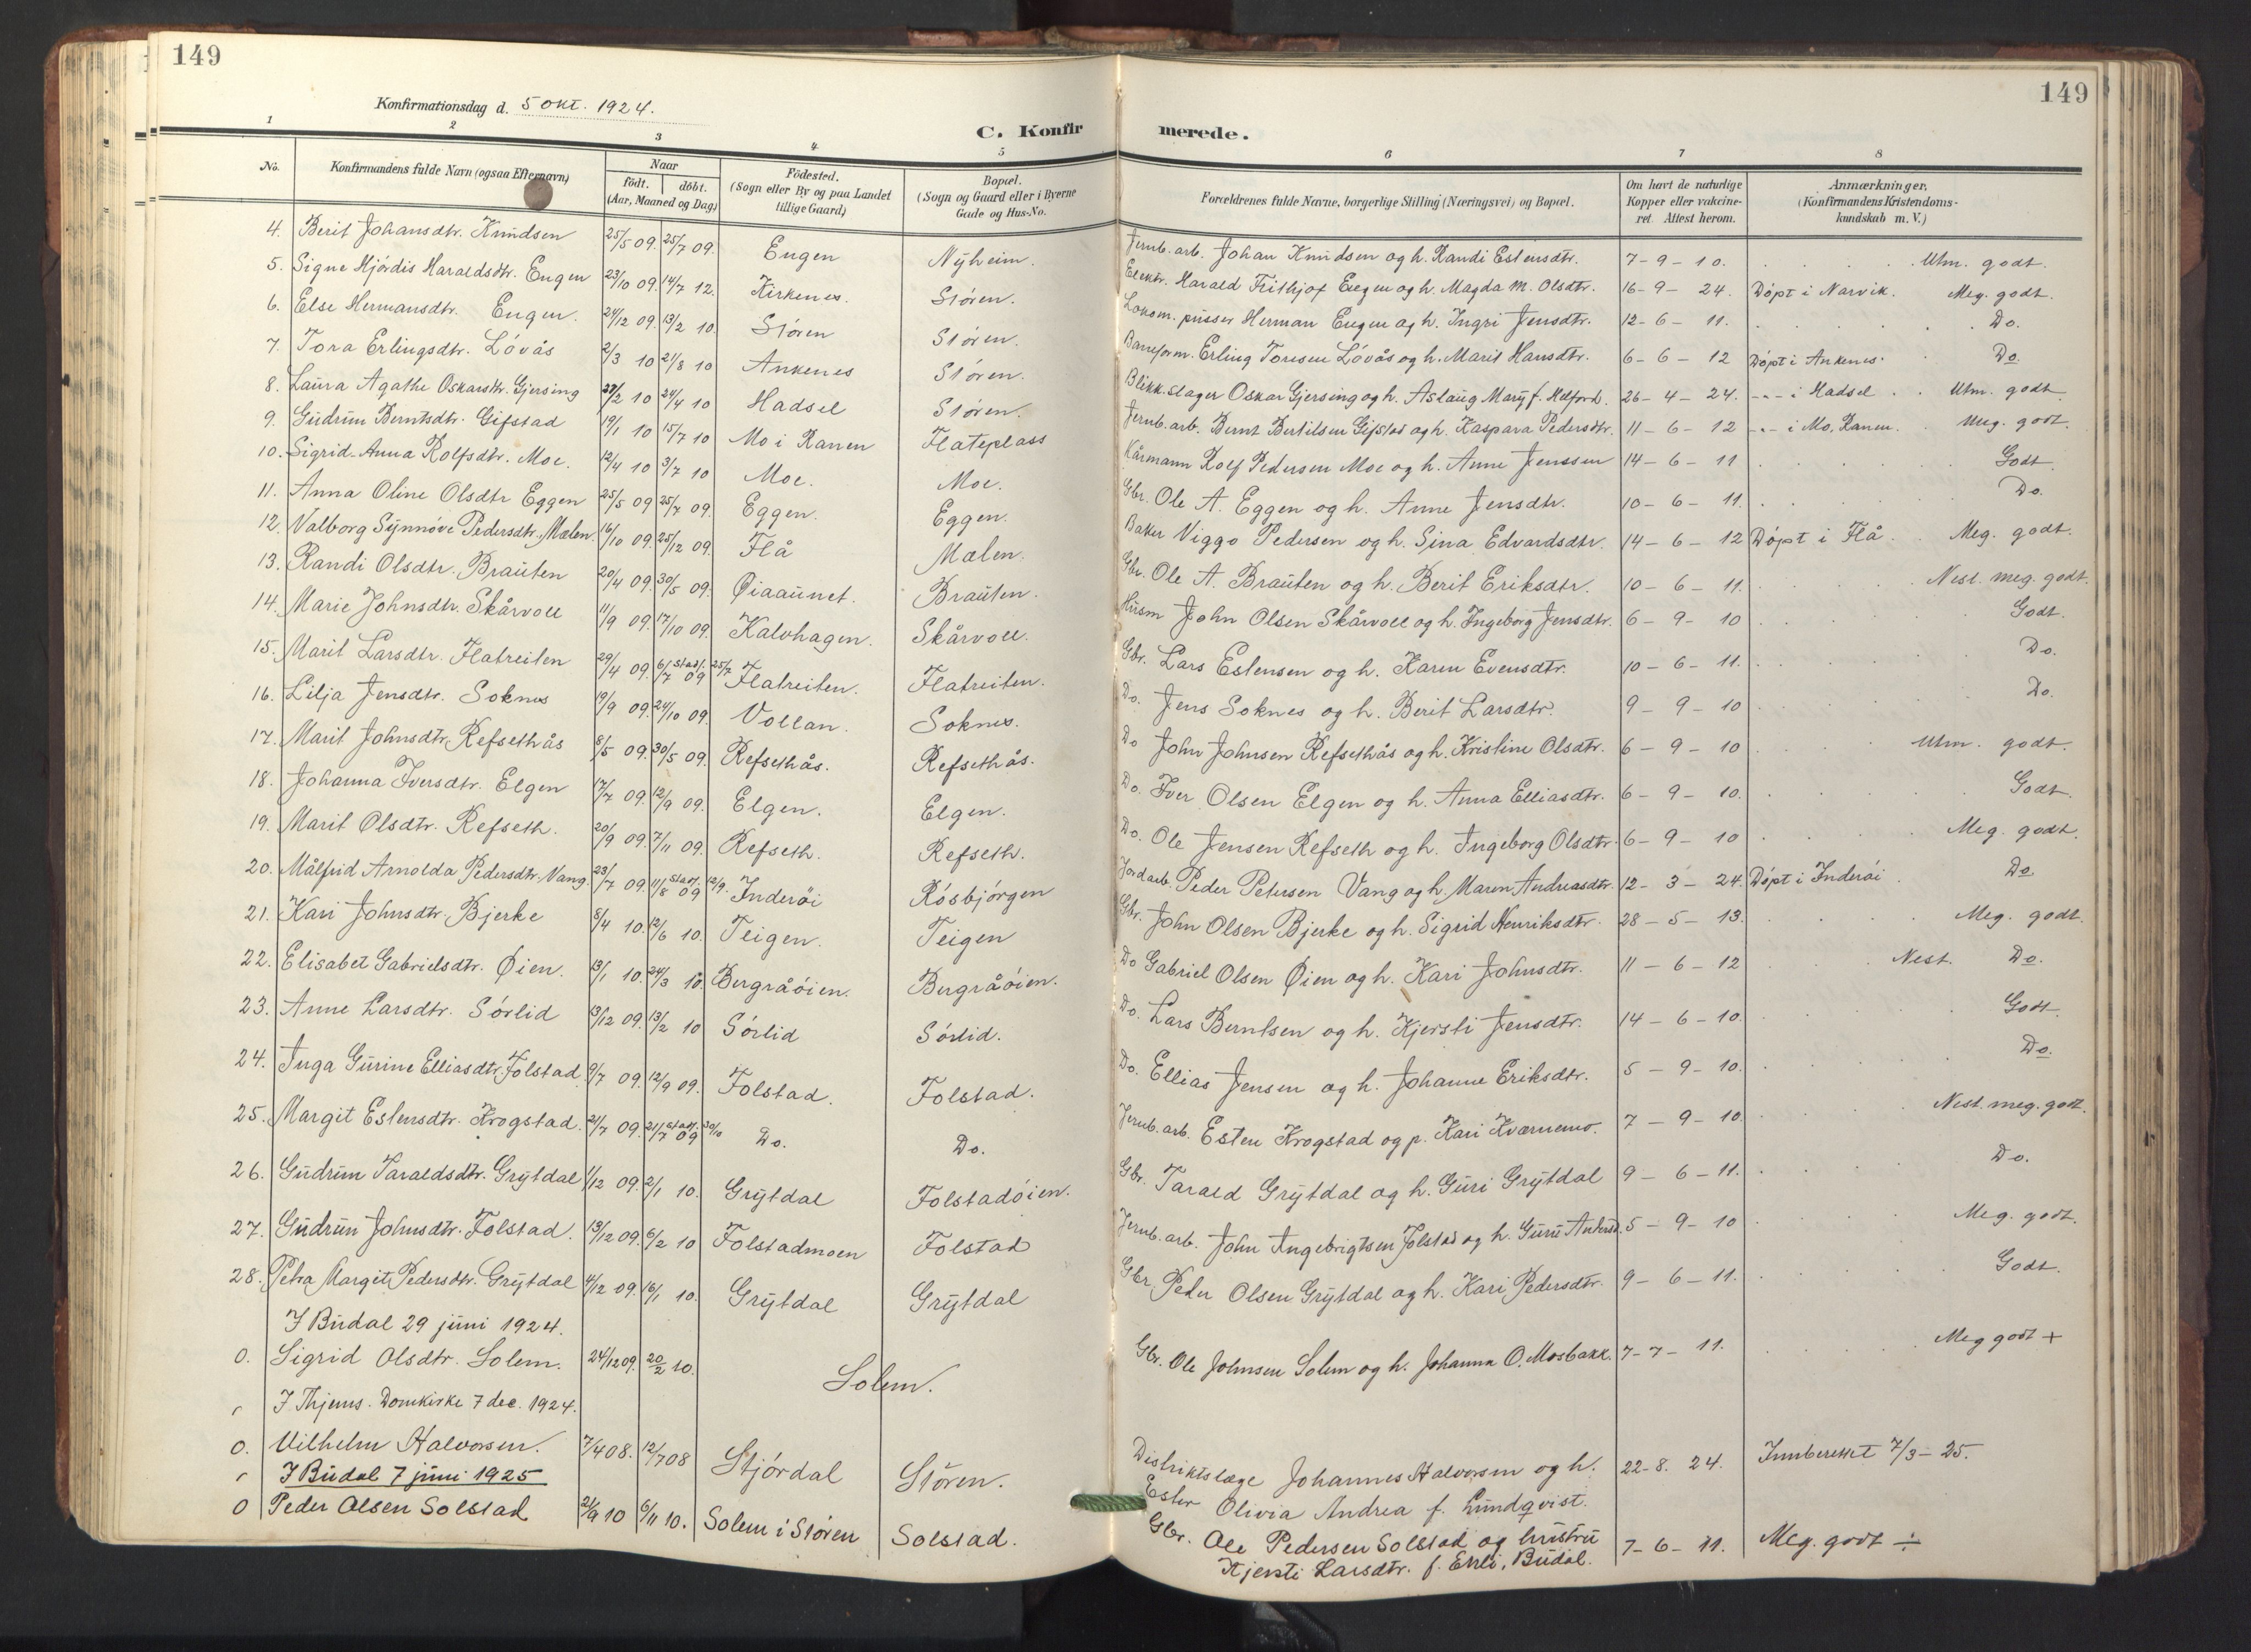 149
149
Konfirmationsdag d. 5 okt. 1924.
C. Konfirmerede.
1 2 3 4 5 6 7 8
No. Konfirmandens fulde Navn (ogsaa Efternavn) Naar født. døbt. (Aar, Maaned og Dag) Fødested. (Sogn eller By og paa Landet tillige Gaard) Bopæl. (Sogn og Gaard eller i Byerne Gade og Hus-No. Forældrenes fulde Navne, borgerlige Stilling (Næringsvei) og Bopæl. Om havt de naturlige Kopper eller vakcineret. Attest herom. Anmærkninger. (Konfirmandens Kristendomskundskab m. V.)
4. Berit Johansdtr. Knudsen 25/5 09. 25/7 09. Engen Nyheim. Jernb. arb. Johan Knudsen og h. Randi Estensdtr. 7-9-10. Utm. godt.
5. Signe Hjördis Haraldsdtr. Engen 23/10 09. 14/7 12. Kirkenes. Støren. Elektr. Harald Frithjof Engen og h. Magda M. Olsdtr. 16-9-24. Døpt i Narvik. Meg. godt.
6. Else Hermansdtr. Engen. 24/12 09. 13/2 10. Støren Støren. Lokom. pusser Herman Engen og h. Ingri Jensdtr. 12-6-11. Do.
7. Tora Erlingsdtr. Løvås 2/3 10 21/8 10 Ankenes Støren. Baneform. Erling Toresen Løvås og h. Marit Hansdtr. 6-6-12 Døpt i Ankenes. Do.
8. Laura Agathe Oskarsdtr. Gjersing 27/2 10 24/4 10 Hadsel Støren. Blikk.slager Oskar Gjersing og h. Aslaug Mary f. 26-4-24. -"- i Hadsel Utm. godt
9. Gudrun Berntsdtr. Gifstad 19/1 10 15/7 10 Mo i Ranen Flateplass Jernb. arb. Bernt Bertilsen Gifstad og h. Kaspara Pedersdtr. 11-6-12 -"- i Mo, Ranen. Meg. godt
10. Sigrid-Anna Rolfsdtr. Moe. 12/4 10 3/7 10 Moe. Moe. Kårmann Rolf Pedersen Moe og h. Anne Jenssen 14-6-11 Godt
11. Anna Oline Olsdtr Eggen 25/5 09 25/7 09. Eggen. Eggen. Gbr. Ole A. Eggen og h. Anne Jensdtr. 10-6-11. Do.
12. Valborg Synnöve Pedersdtr. Mælen. 16/10 09. 25/12 09. Flå Mælen. Baker Viggo Pedersen og h. Sina Edvardsdtr. 14-6-12 Døpt i Flå. Meg. godt.
13. Randi Olsdtr. Brauten 20/4 09. 30/5 09. Øiaaunet. Brauten. Gbr. Ole A. Brauten og h. Berit Eriksdtr. 10-6-11. Nest. meg. godt.
14. Marie Johnsdtr. Skårvoll 11/9 09. 17/10 09. Kalvhagen. Skårvoll. Husm John Olsen Skårvoll og h. Ingeborg Jensdtr. 6-9-10 Godt.
15. Marit Larsdtr. Flatreiten 29/4 09. 6/7 09 stadf. 25/7 Flatreiten. Flatreiten. Gbr. Lars Estensen og h. Karen Evensdtr. 10-6-11. Do.
16. Lilja Jensdtr. Soknes 19/9 09. 24/10 09. Vollan. Soknes. Do. Jens Soknes og h. Berit Larsdtr. 9-9-10 Do.
17. Marit Johnsdtr. Refsethås 8/5 09. 30/5 09. Refsethås. Refsethås. Do John Johnsen Refsethås og h. Kristine Olsdtr. 6-9-10 Utm. godt.
18. Johanna Iversdtr. Elgen 17/7 09. 12/9 09. Elgen. Elgen. Do. Iver Olsen Elgen og h. Anna Elliasdtr. 6-9-10. Godt.
19. Marit Olsdtr. Refseth. 20/9 09. 7/11 09. Refseth. Refseth. Do. Ole Jensen Refseth og h. Ingeborg Olsdtr. 6-9-10 Meg. godt.
20. Målfrid Arnolda Pedersdtr. Vang. 23/7 09. 11/8 09 stadf. 12/9. Inderøi Røsbjørgen Jordarb. Peder Petersen Vang og h. Maren Andreasdtr. 12-3-24. Døpt i Inderøi Do
21. Kari Johnsdtr. Bjerke 8/4 10. 12/6 10. Teigen. Teigen Gbr. John Olsen Bjerke og h. Sigrid Henriksdtr. 28-5-13. Meg. godt.
22. Elisabet Gabrielsdtr. Øien. 13/1 10. 24/3 10. Bergråøien. Bergråøien. Do Gabriel Olsen Øien og h. Kari Johnsdtr. 11-6-12 Nest. Do.
23. Anne Larsdtr. Sørlid 13/12 09. 13/2 10 Sørlid Sørlid. Do. Lars Berntsen og h. Kjersti Jensdtr. 14-6-10. Godt.
24. Inga Gurine Elliasdtr. Folstad 9/7 09. 12/9 09. Folstad. Folstad. Do. Ellias Jensen og h. Johanne Eriksdtr. 5-9-10. Do.
25. Margit Estensdtr. Krogstad. 21/7 09. 21/7 09 stadf. 30/10 Do. Do. Jernb. arb. Esten Krogstad og p. Kari Kværnemo. 7-9-10. Nest. meg. godt.
26. Gudrun Taraldsdtr. Grytdal 1/12 09. 2/1 10. Grytdal Folstadøien. Gbr. Tarald Grytdal og h. Guri Grytdal 9-6-11. Do.
27. Gudrun Johnsdtr. Folstad. 13/12 09. 6/2 10 Folstadmoen Folstad Jernb. arb. John Ingebrigtsen Folstad og h. Guru Andersd. 5-9-10 Meg. godt.
28. Petra Margit Pedersdtr. Grytdal 4/12 09. 16/1 10. Grytdal Grytdal Gbr. Peder Olsen Grytdal og h. Kari Pedersdtr. 9-6-11. Godt.
I Budal 29 juni 1924.
0. Sigrid Olsdtr. Solem. 24/12 09. 20/2 10. Solem. Gbr. Ole Johnsen Solem og h. Johanna O. Mosbakk. 7-7-11. Meg godt +
I Thjems. Domkirke 7 dec. 1924.
0. Vilhelm Halvorsen. 7/4 08. 12/7 08 Stjørdal Støren. Distriktslæge Johannes Halvorsen og h. Ester Olivia Andrea f. Lundqvist. 22-8. 24. Innberettet 7/3-25.
I Budal 7 juni 1925
0 Peder Olsen Solstad 21/9 10 6/11 10. Solem i Støren Solstad. Gbr. Ole Pedersen Solstad og hustru Kjersti Larsdtr. f. Enli, Budal. 7-6-11. Meg. godt ÷